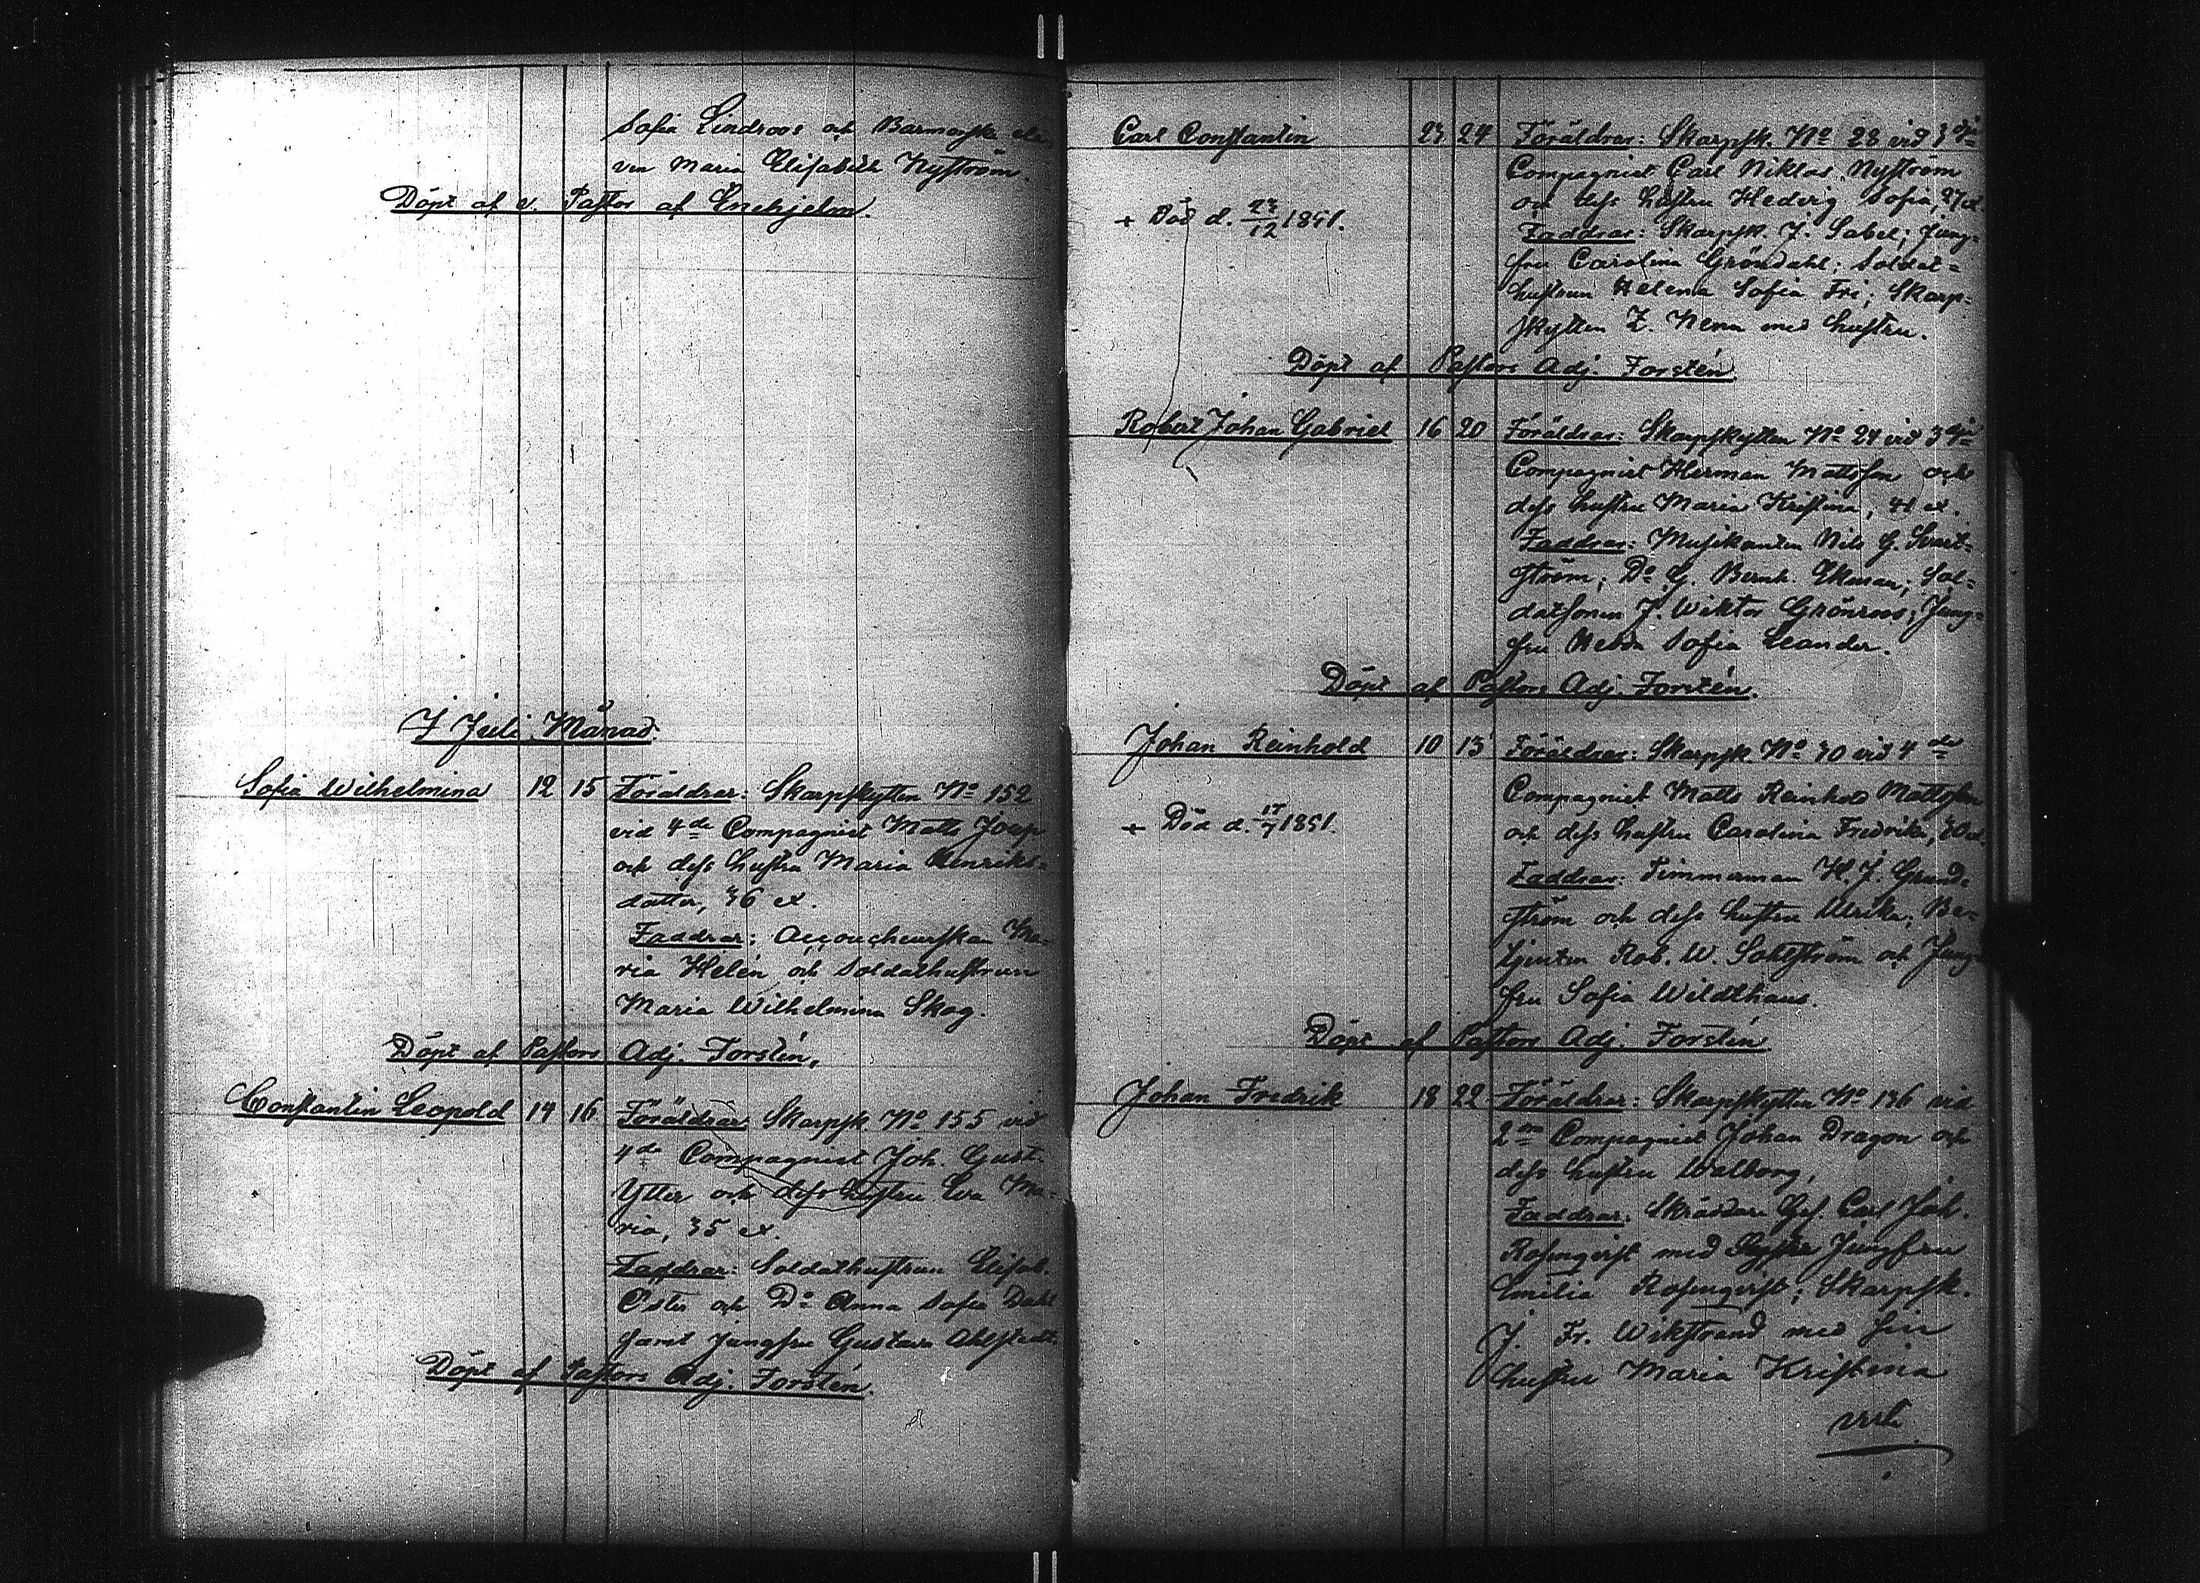 Sofia Lindroos och Barnmorske ele-
ven Maria Elisabeth Nyström.
Döpt af v. Pastor af Enehjelm.
I Juli Månad.
Sofia Wilhelmina 12 15 Föräldrar: Skarpskytten No 152
vid 4de Compagniet Matts Joup
och dess hustru Maria Henriks-
dotter, 36 et.
Faddrar: Accoucheurskan Ma-
ria Helén och Soldathustrun
Maria Wilhelmina Skog.
Döpt af Pastors Adj. Forstén.
Constantin Leopold 14 16 Föräldrar Skarpsk No 155 vid
4de Compagniet Joh. Gust.
Ytter och dess hustru Eva Ma-
ria, 35 et.
Faddrar: Soldathustrun Elisab.
Öster och Do Anna Sofia Dahl
samt Jungfru Gustava Ahlstedt.
Döpt af Pastors Adj. Forstén.
Carl Constantin 23 24 Föräldrar: Skarpsk. No 28 vid 3dje
Compagniet Carl Niklas Nyström
och dess hustru Hedvig Sofia, 27 et.
+ Död d. 23/12 1851.
Faddrar: Skarpsk. J. Sabel; Jung-
fru Carolina Gröndahl; Soldat-
hustrun Helena Sofia Fri; Skarp-
skytten Z. Nenn med hustru.
Döpt af Pastors Adj. Forstén.
Robert Johan Gabriel 16 20 Föräldrar: Skarpskytten No 24 vid 3dje
Compagniet Herman Mattsson och
dess hustru Maria Kristina, 41 et.
Faddrar: Musikanten Nils G. Svart-
ström; Do G. Bernh. Ekman; Sol-
datsonen J. Wiktor Grönroos; Jung-
fru Hedda Sofia Leander.
Döpt af Pastors Adj. Forstén.
Johan Reinhold 10 13 Föräldrar: Skarpsk No 30 vid 4de
Compagniet Matts Reinhold Mattsson
och dess hustru Carolina Fredrika, 30 et.
+ Död d. 17/7 1851.
Faddrar: Timmerman H. J. Grund-
ström och dess hustru Ulrika; Be-
tjenten Rob. W. Sohlström och Jung-
fru Sofia Wildthaus.
Döpt af Pastors Adj. Forstén
Johan Fredrik 18 22 Föräldrar: Skarpskytten No 136 vid
2ra Compagniet Johan Dragon och
dess hustru Walborg,
Faddrar: Skräddare Ges. Carl Joh.
Rosenqvist med Syster Jungfru
Emilia Rosenqvist; Skarpsk.
J. Fr. Wikstrand med sin
hustru Maria Kristina